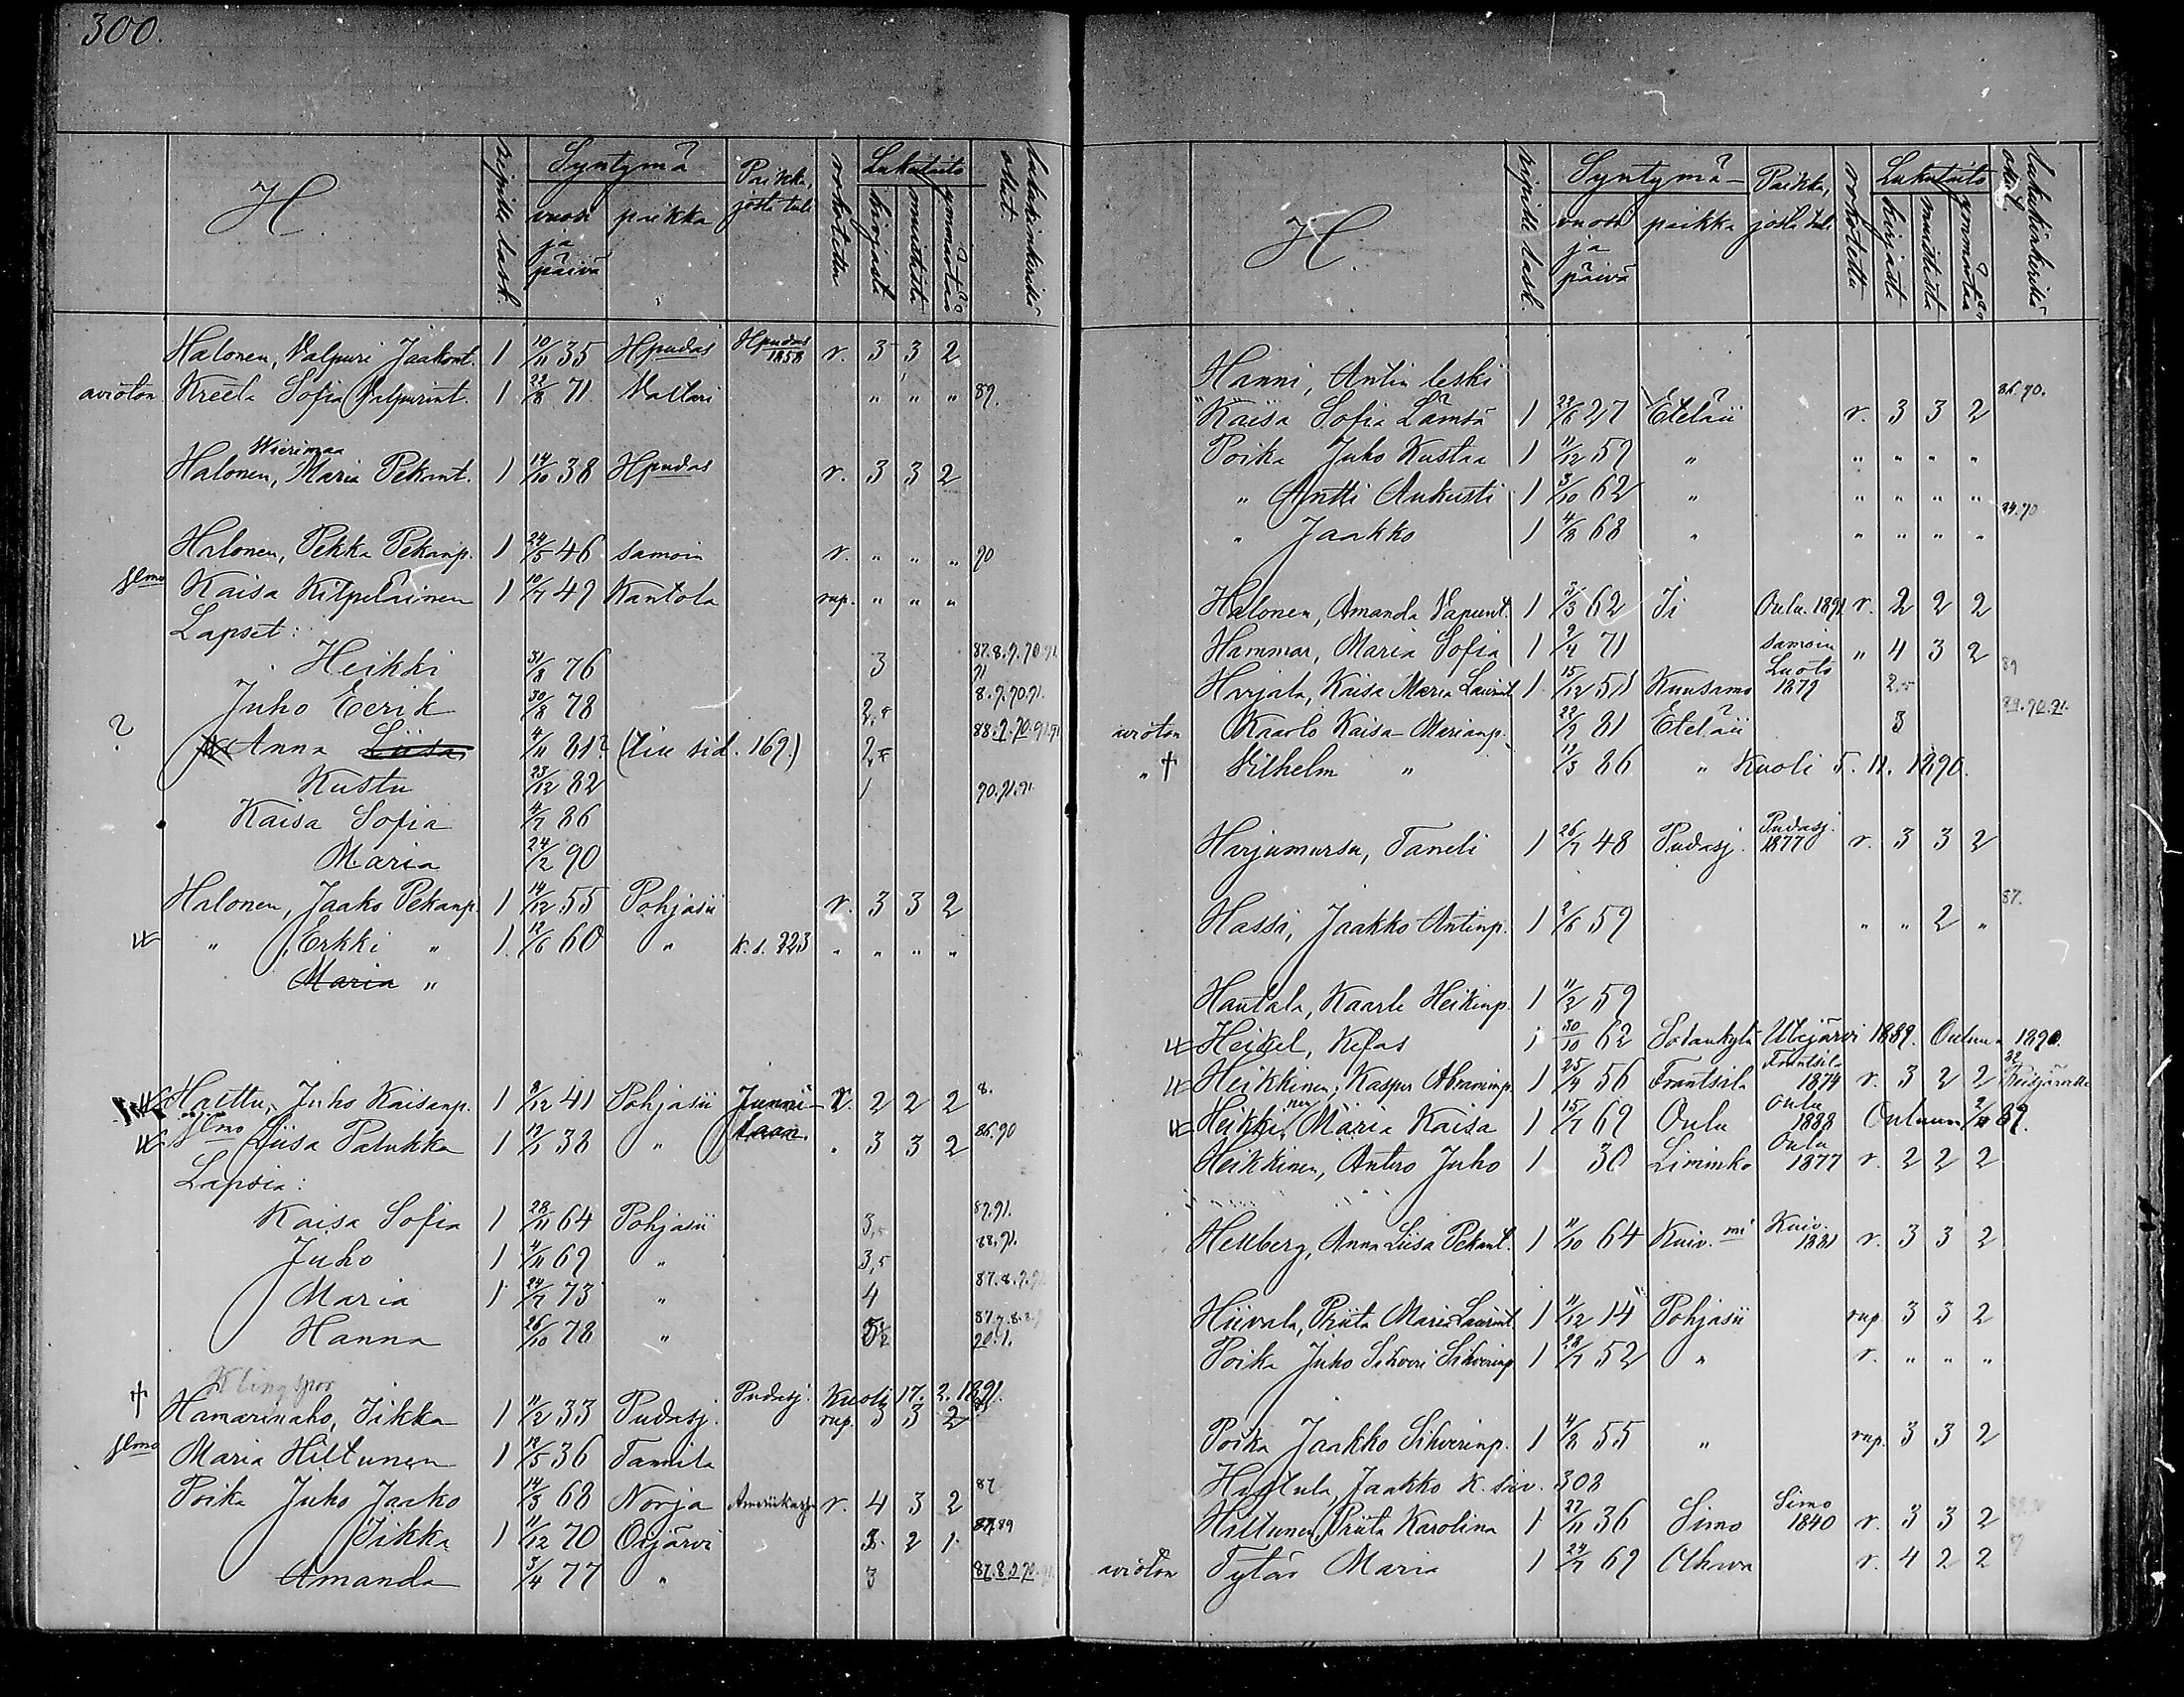 300.
H.
ripille lask.
Syntymä
vuosi ja päivä
paikka
Paikka, josta tuli
rokotettu
Lukutaito
kirjasta
muistista
ymmärtää
lukukinkerillä ollut.
Halonen, Valpuri Jaakont. 1 10/11 35 Hpudas Hpudas 1858 r. 3 3 2
avioton Kreeta Sofia Valpurint. 1 22/8 71 Vattari " " " 89.
Wierimaa
Halonen, Maria Pekant. 1 14/10 38 Hpudas r. 3 3 2
Halonen, Pekka Pekanp. 1 24/5 46 samoin r. " " " 90
Kaisa Kilpeläinen 1 10/7 49 Kantola rup. " " "
Lapset:
Heikki 31/8 76 3 87.8.9.90.91.
Juho Eerik 30/8 78 2,5 8.9.90.91.
? Anna Liisa 4/11 81? (liu sid. 169.) 88.9.90.91
Kustu 23/12 82 1 90.91.91.
Kaisa Sofia 4/7 86
Maria 24/2 90
Halonen, Jaako Pekanp. 1 14/12 55 Pohjasii r. 3 3 2
" Erkki " 1. 12/6 60 " K. s. 223 " " " "
Maria "
Haettu, Juho Kaisanp. 1 8/12 41 Pohjasii Junni- r. 2 2 2 8.
Liisa Palukka 1 12/1 38 " laan. " 3 3 2 86.90
Lapsia:
Kaisa Sofia 1 28/11 64 Pohjasii 3,5 89.91.
Juho 1 4/11 69 " 3,5 88.91.
Maria 1 24/7 73 " 4 87.8.9.
Hanna 26/10 78 "
Klingspor
† Hamarinaho, Iikka 1 11/2 33 Pudasj. Pudasj. Kuoli 17. 2. 1891. rup. 3 3 2
Maria Hiltunen 1 12/5 36 Tannila
Poika Juho Jaako 14/3 68 Norja r. 4 3 2 87
Iikka 1 11/12 70 Oijärvi 3. 2 1. 87.89
Amanda 3/4 77 " 3 87.8.9.90.
H.
ripille lask.
Syntymä-
vuosi ja päivä
paikka
Paikka, josta tuli
rokotettu
Lukutaito
kirjasta
muistista
ymmärtää
lukukinkerillä ollut.
Hanni, Antin leski
Kaisa Sofia Lämsä 1 22/6 27 Eteläii r. 3 3 2 86.90.
Poika Juho Kustaa 1 11/12 59 " " " " "
" Antti Aukusti 1 3/10 62 " " " " "
" Jaakko 1 4/8 68 " " " " " 90
Halonen, Amanda Vapunt. 1 3/3 62 Ii Oulu. 1891 r. 2 2 2
Hammar, Maria Sofia 1 9/4 71 samoin " 4 3 2
Harjala, Kaisa Maria Laurint. 1 15/12 51 Kuusamo Luoto 1879 2,5 89
avioton Kaarlo Kaisa-Marianp. 22/2 81 Eteläii 3 89.90.91.
" † Vilhelm " 12/3 86 " Kuoli 5. 11. 1890.
Harjumursu, Taneli 1 26/7 48 Pudasj. Pudasj. 1877 r. 3 3 2
Hassi, Jaakko Antinp. 1 2/6 59 " " 2 " 87.
Hautala, Kaarle Heikinp. 1 11/2 59
Heikel, Kefas 1 30/10 62 Sodankylä Utsjärvi 1889. Ouluun 1890.
Heikkinen, Kaspar Abraminp. 1 25/4 56 Frantsila Frantsila 1874 r. 3 2 2
Heikkinen, Maria Kaisa 1 15/7 69 Oulu Oulu 1888 Ouluun 89.
Heikkinen, Antero Juho 1 30 Liminko Oulu 1877 r. 2 2 2
Hellberg, Anna Liisa Pekant. 1 11/10 64 Kuiv. mi Kuiv. 1881 r. 3 3 2
Hiivala, Priita Maria Laurint. 1 11/12 14 Pohjasii rup. 3 3 2
Poika Juho Sihveri Sihverinp. 1 28/7 52 " r. " " "
Poika Jaakko Sihverinp. 1 4/8 55 " rup. 3 3 2
Jaakko K. siv. 308
Hiltunen, Priita Karolina 1 27/11 36 Simo Simo 1840 r. 3 3 2
avioton Tytär Maria 1 24/7 69 Olhava r. 4 2 2